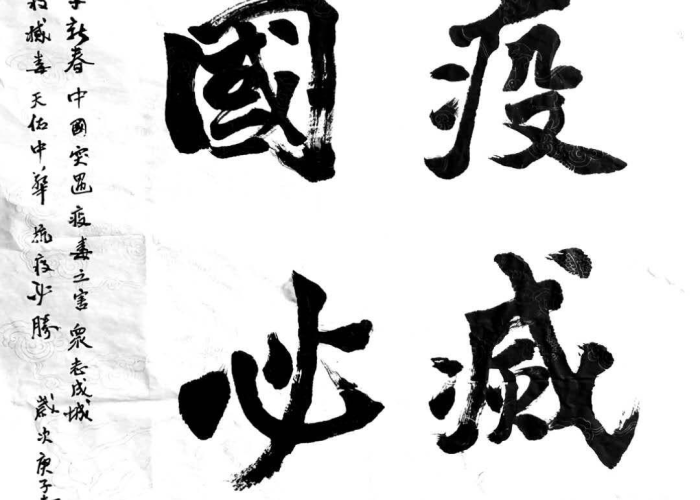 疫減
國必
新春中國突遇疫毒之害眾志成城
減毒天佑中華抗疫必勝
歲次庚子